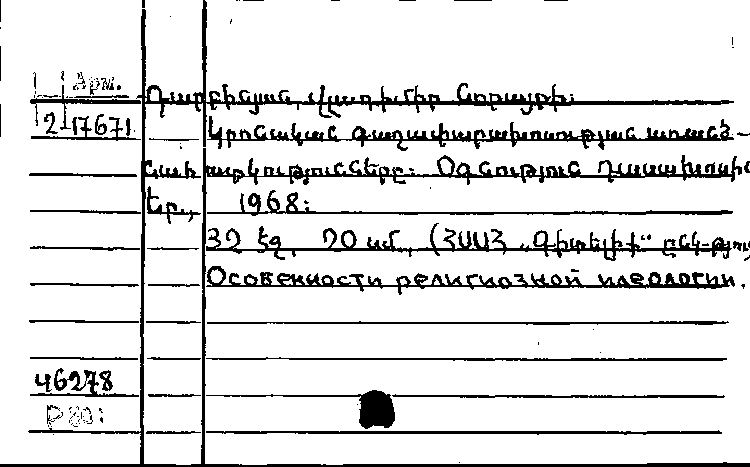 Арм.
Դարբինյան, Վլադիմիր Նորայրի:
2-17671
Կրոնական գաղափարախոսության առանձ-
նահատկությունները: Օգնություն դասախոսի
Եր., 1968:
32 էջ, 20 սմ, (ՀՍՍՀ „Գիտելիք“ ընկ-թյու
Особенности религиозной идеологии.
46278
Р 80: